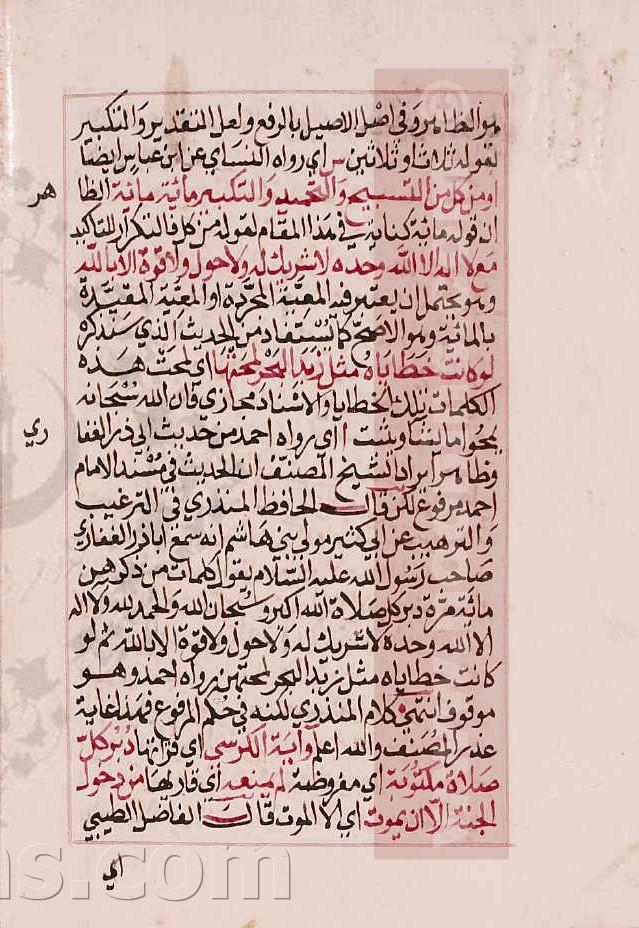 هو الظاهر وفي اصل الاصيل بالرفع ولعل التقدير والتكبير
لقوله ثلاث او ثلاثين س اي رواه النسائي عن ابن عباس ايضا
او من كل من التسبيح والتحميد والتكبير مائة مائة الظا
هر
ان قوله مائة كناية في هذا المقام لقوله من كل فالتكرار للتاكيد
مع لا اله الا الله وحده لا شريك له ولا حول ولا قوة الا بالله
وهو يحتمل ان يعتبر فيه المعية المجردة او المعية المقيدة
بالمائية وهو الاصح كما يستفاد من الحديث الذي سنذكره
لو كانت خطاياه مثل زبد البحر لمحتها اي لمحت هذه
الكلمات تلك الخطايا والاسناد مجازي فان الله سبحانه
يمحوا ما يشا ويثبت ا اي رواه احمد من حديث ابي ذر الغفا
ري
وظاهر ايراد الشيخ المصنف ان الحديث في مسند الامام
احمد مرفوع لكن قال الحافظ المنذري في الترغيب
والترهيب عن ابي كثير مولى بني هاشم انه سمع ابا ذر الغفاري
صاحب رسول الله عليه السلام يقول كلمات من ذكرهن
مائة مرة دبر كل صلاة الله اكبر وسبحان الله والحمد لله ولا اله
الا الله وحده لا شريك له ولا حول ولا قوة الا بالله ثم لو
كانت خطاياه مثل زبد البحر لمحتهن رواه احمد وهو
موقوف انتهى كلام المنذري لكنه في حكم المرفوع فهذا غاية
عذر المصنف والله اعلم واية الكرسي اي قراتها دبر كل
صلاة مكتوبة اي مفروضة لم يمنعه اي قاريها من دخول
الجنة الا ان يموت اي الا الموت قال الفاضل الطيبي
اي
ns.com